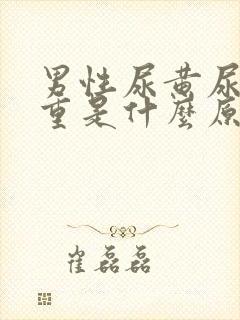 男性尿黄尿
重是什麼原
崔磊磊